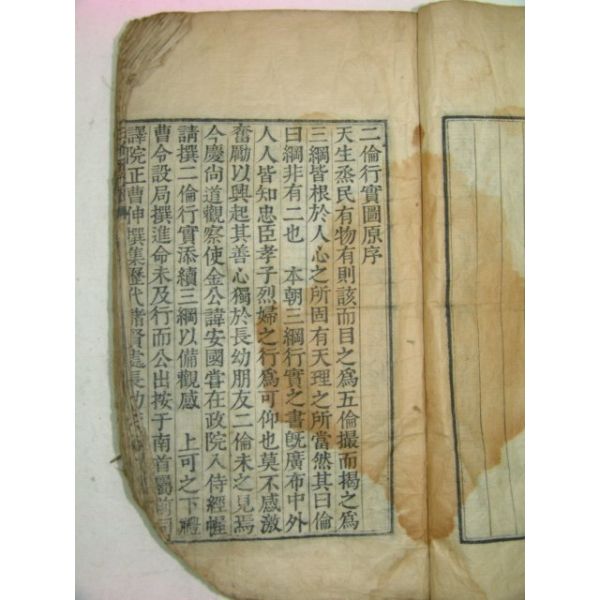 二倫行實圖原序
天生烝民有物有則該而目之爲五倫撮而揭之爲
三綱皆根於人心之所固有天理之所當然其曰倫
曰綱非有二也 本朝三綱行實之書旣廣布中外
人人皆知忠臣孝子烈婦之行爲可仰也莫不感激
奮勵以興起其善心獨於長幼朋友二倫未之見焉
今慶尙道觀察使金公諱安國嘗在政院入侍經幄
請撰二倫行實添續三綱以備觀感 上可之下禮
曹令設局撰進命未及行而公出按于南首屬前司
譯院正曹伸撰集歷代諸賢處長幼